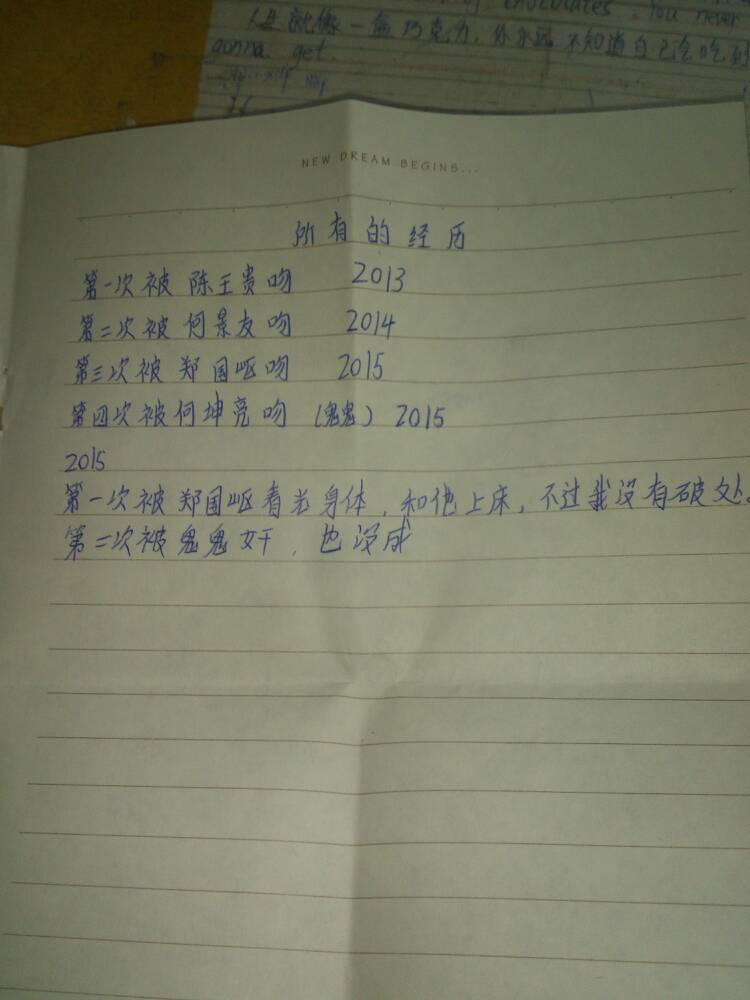 of chocolates. You never
人生就像一盒巧克力，你永远不知道自己会吃到
gonna get.
NEW DREAM BEGINS...
所有的经历
第一次被陈王贵吻 2013
第二次被何景友吻 2014
第三次被郑国岖吻 2015
第四次被何坤亮吻（鬼鬼）2015
2015
第一次被郑国岖看光身体，和他上床，不过我没有破处。
第二次被鬼鬼奸，也没成